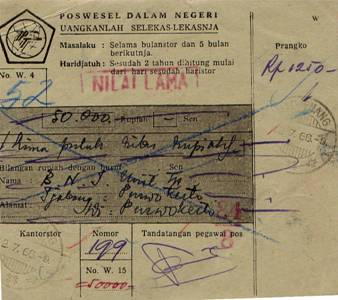 POSWESEL DALAM NEGERI
W
UANGKANLAH SELEKAS-LEKASNJA
Masalaku : Selama bulanstor dan 5 bulan
berikutnja.
Prangko
Haridjatuh : Sesudah 2 tahun dihitung mulai
dari hari sesudah haristor
Rp 1250-
No. W. 4
NILAI LAMA
52
50.000.- Rupiah Sen
Lima puluh ribu rupiah
Bilangan rupiah dengan huruf
Nama : B. N. I. Unit III
Alamat : Tjabang : Purwokerto
Purwokerto
Kantorstor
Nomor
Tandatangan pegawai pos
199
No. W. 15
50000.-